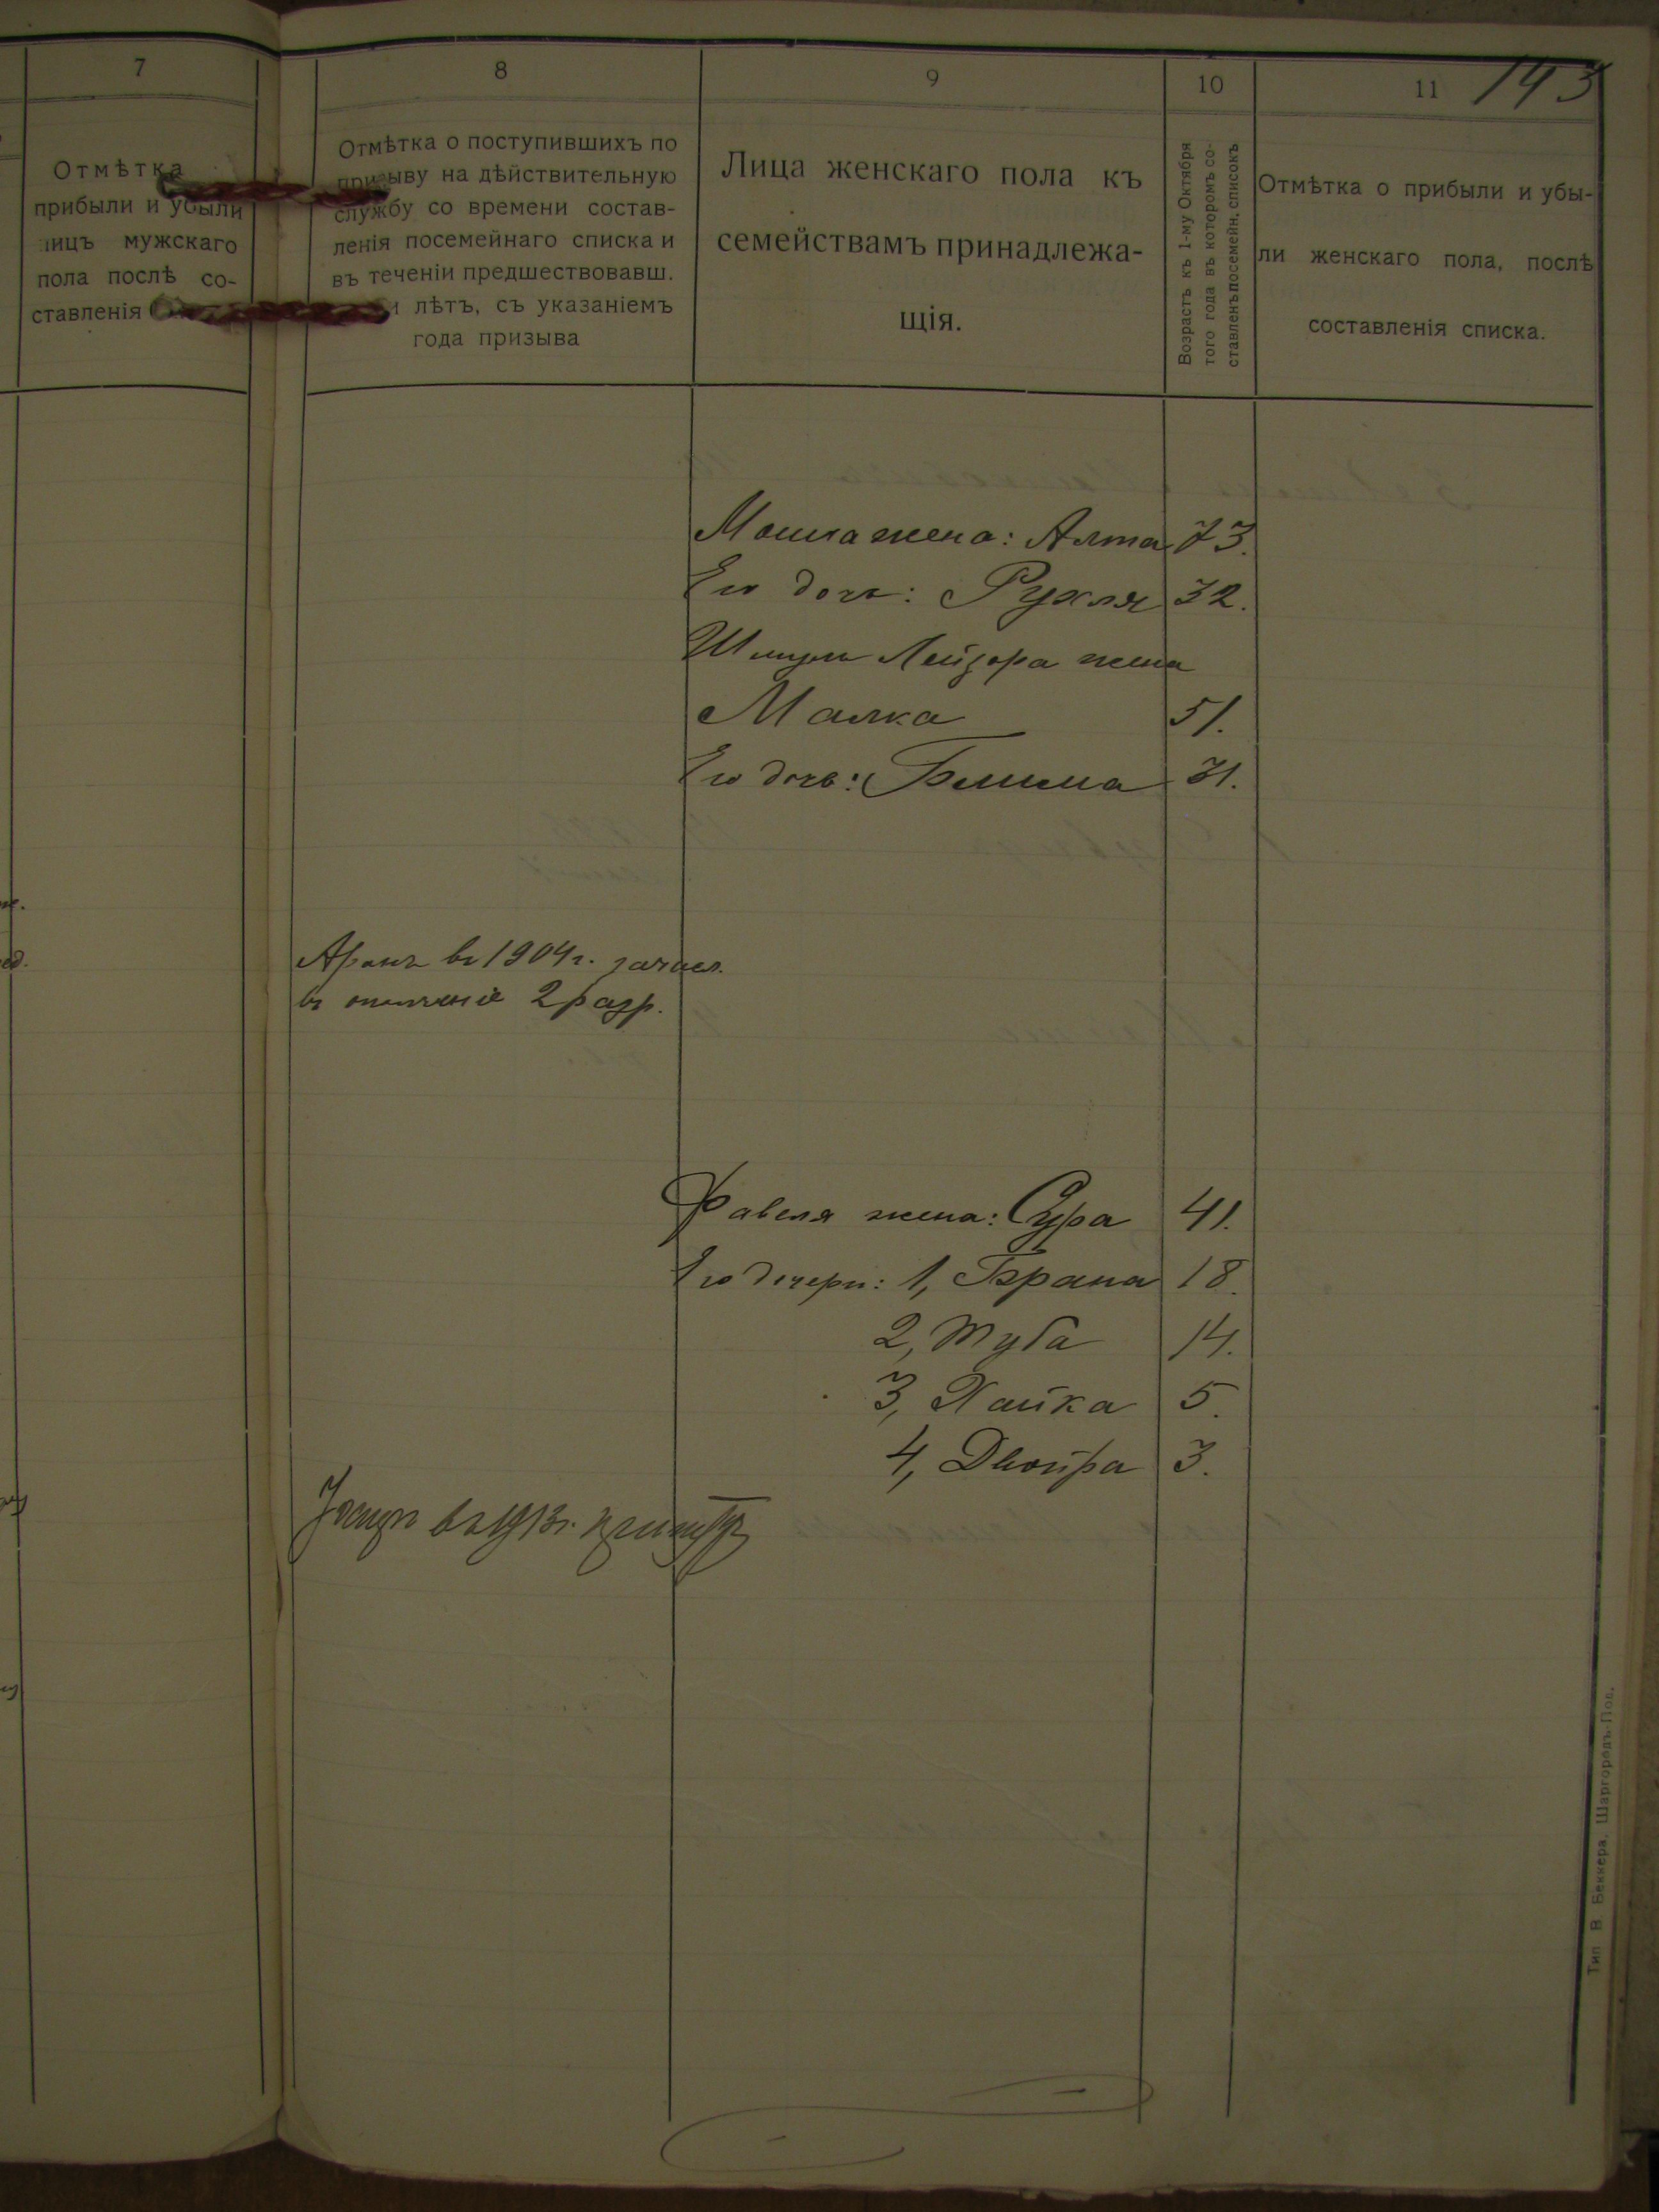 7
8
9
10
11
143
Отмѣтка
прибыли и убыли
лицъ мужскаго
пола послѣ со-
ставленія
Отмѣтка о поступившихъ по
призыву на дѣйствительную
службу со времени состав-
ленія посемейнаго списка и
въ теченіи предшествовавш.
лѣтъ, съ указаніемъ
года призыва
Лица женскаго пола къ
семействамъ принадлежа-
щія.
Возрастъ къ 1-му Октября
того года въ которомъ со-
ставленъ посемейн. списокъ
Отмѣтка о прибыли и убы-
ли женскаго пола, послѣ
составленія списка.
Мошка жена: Алта 73.
Его дочь: Рухля 32.
Шмуль Лейзора жена
Малка 51.
Его дочь: Блима 31.
Аронъ въ 1904 г. зачисл.
въ ополченіе 2 разр.
Фавеля жена: Сура 41.
Его дочери: 1, Брана 18.
2, Туба 14.
3, Хайка 5.
4, Двойра 3.
въ 1913 г.
Тип В. Беккера, Шаргородъ-Под.